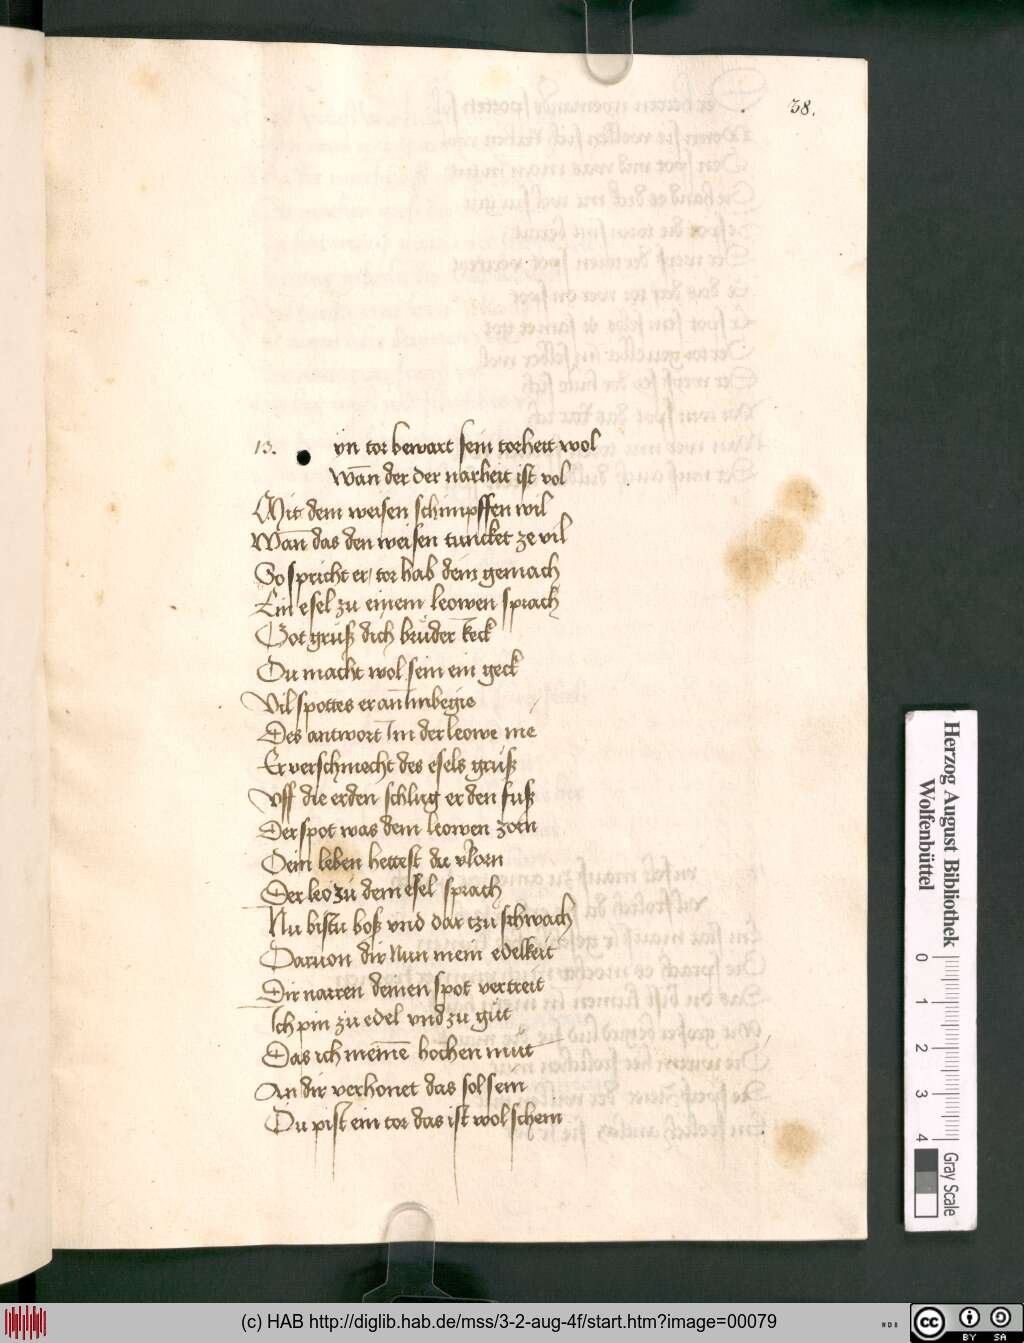 38.
13. yn tor bewart sein torheit wol
Wan̄ der der narheit ist vol
Mit dem weisen schimpffen wil
Wan̄ das den weisen tuncket ze vil
So spricht er / tor hab dein gemach
Ein esel zu einem leowen sprach
Got grüß dich brüder keck
Du macht wol sein ein geck
Vil spottes er an im begie
Des antwort Im der leowe nie
Er verschmecht des esels grüß
Vff die erden schlug er den fuß
Der spot was dem leowen zorn
Dein leben hettest du v̓lorn
Der leo zü dem esel sprach
Nu bistu boß vnd dar tzu schwach
Daruon dir Nun mein edelkeit
Dir narren deinen spot vertreit
Ich pin zu edel vnd zu güt
Das ich meinē hochen müt
An dir verhonet das sol sein
Du pist ein tor das ist wol schein
Herzog August Bibliothek
Wolfenbüttel
0 1 2 3 4
Gray Scale
(c) HAB http://diglib.hab.de/mss/3-2-aug-4f/start.htm?image=00079
WDB
CC BY SA